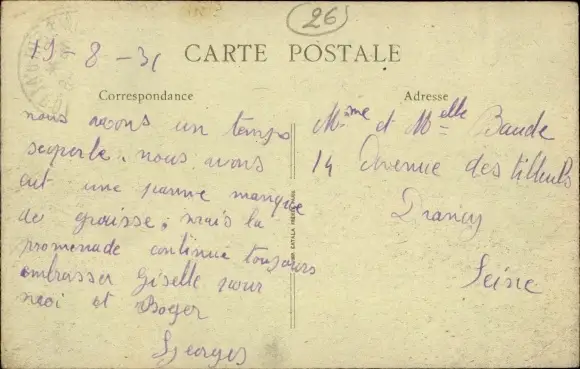 26
19-8-31
CARTE POSTALE
Correspondance
Adresse
nous avons un temps
superbe. nous avons
eut une panne manque
de graisse, mais la
promenade continue toujours
embrasser Giselle pour
moi et Roger
Georges
Mme et Melle Baude
14 Avenue des tilleuls
Drancy
Seine